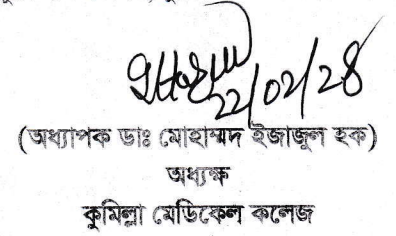 ২২/০২/২৪
(অধ্যাপক ডাঃ মোহাম্মদ ইজাজুল হক)
অধ্যক্ষ
কুমিল্লা মেডিকেল কলেজ